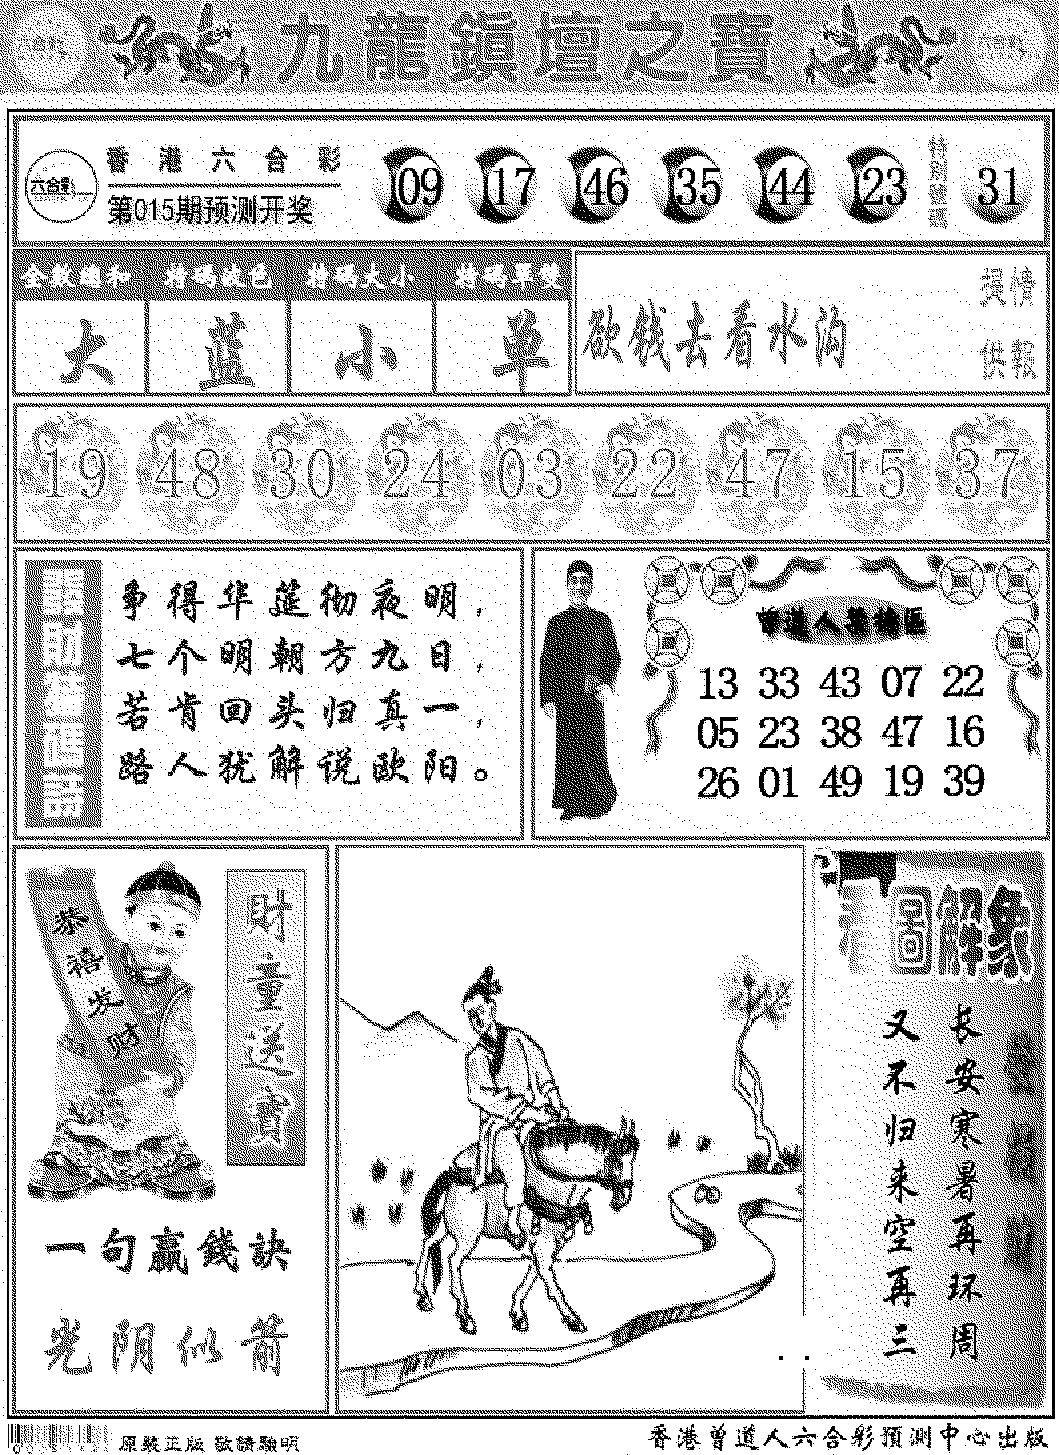 九龍鎮壇之寶
香港六合彩
六合彩
第015期预测开奖
09 17 46 35 44 23
特别號碼
31
全數總和 特碼波色 特碼大小 特碼單雙
大 蓝 小 单
欲钱去看水沟
提供
情報
19 48 30 24 03 22 47 15 37
争得华莲彻夜明，
七个明朝方九日，
若肯回头归真一，
路人犹解说欧阳。
13 33 43 07 22
05 23 38 47 16
26 01 49 19 39
恭禧发财
財童送寶
一句赢錢訣
光阴似箭
圖解象
长安寒暑再环周
又不归来空再三
原裝正版 敬請驗明
香港曾道人六合彩預測中心出版